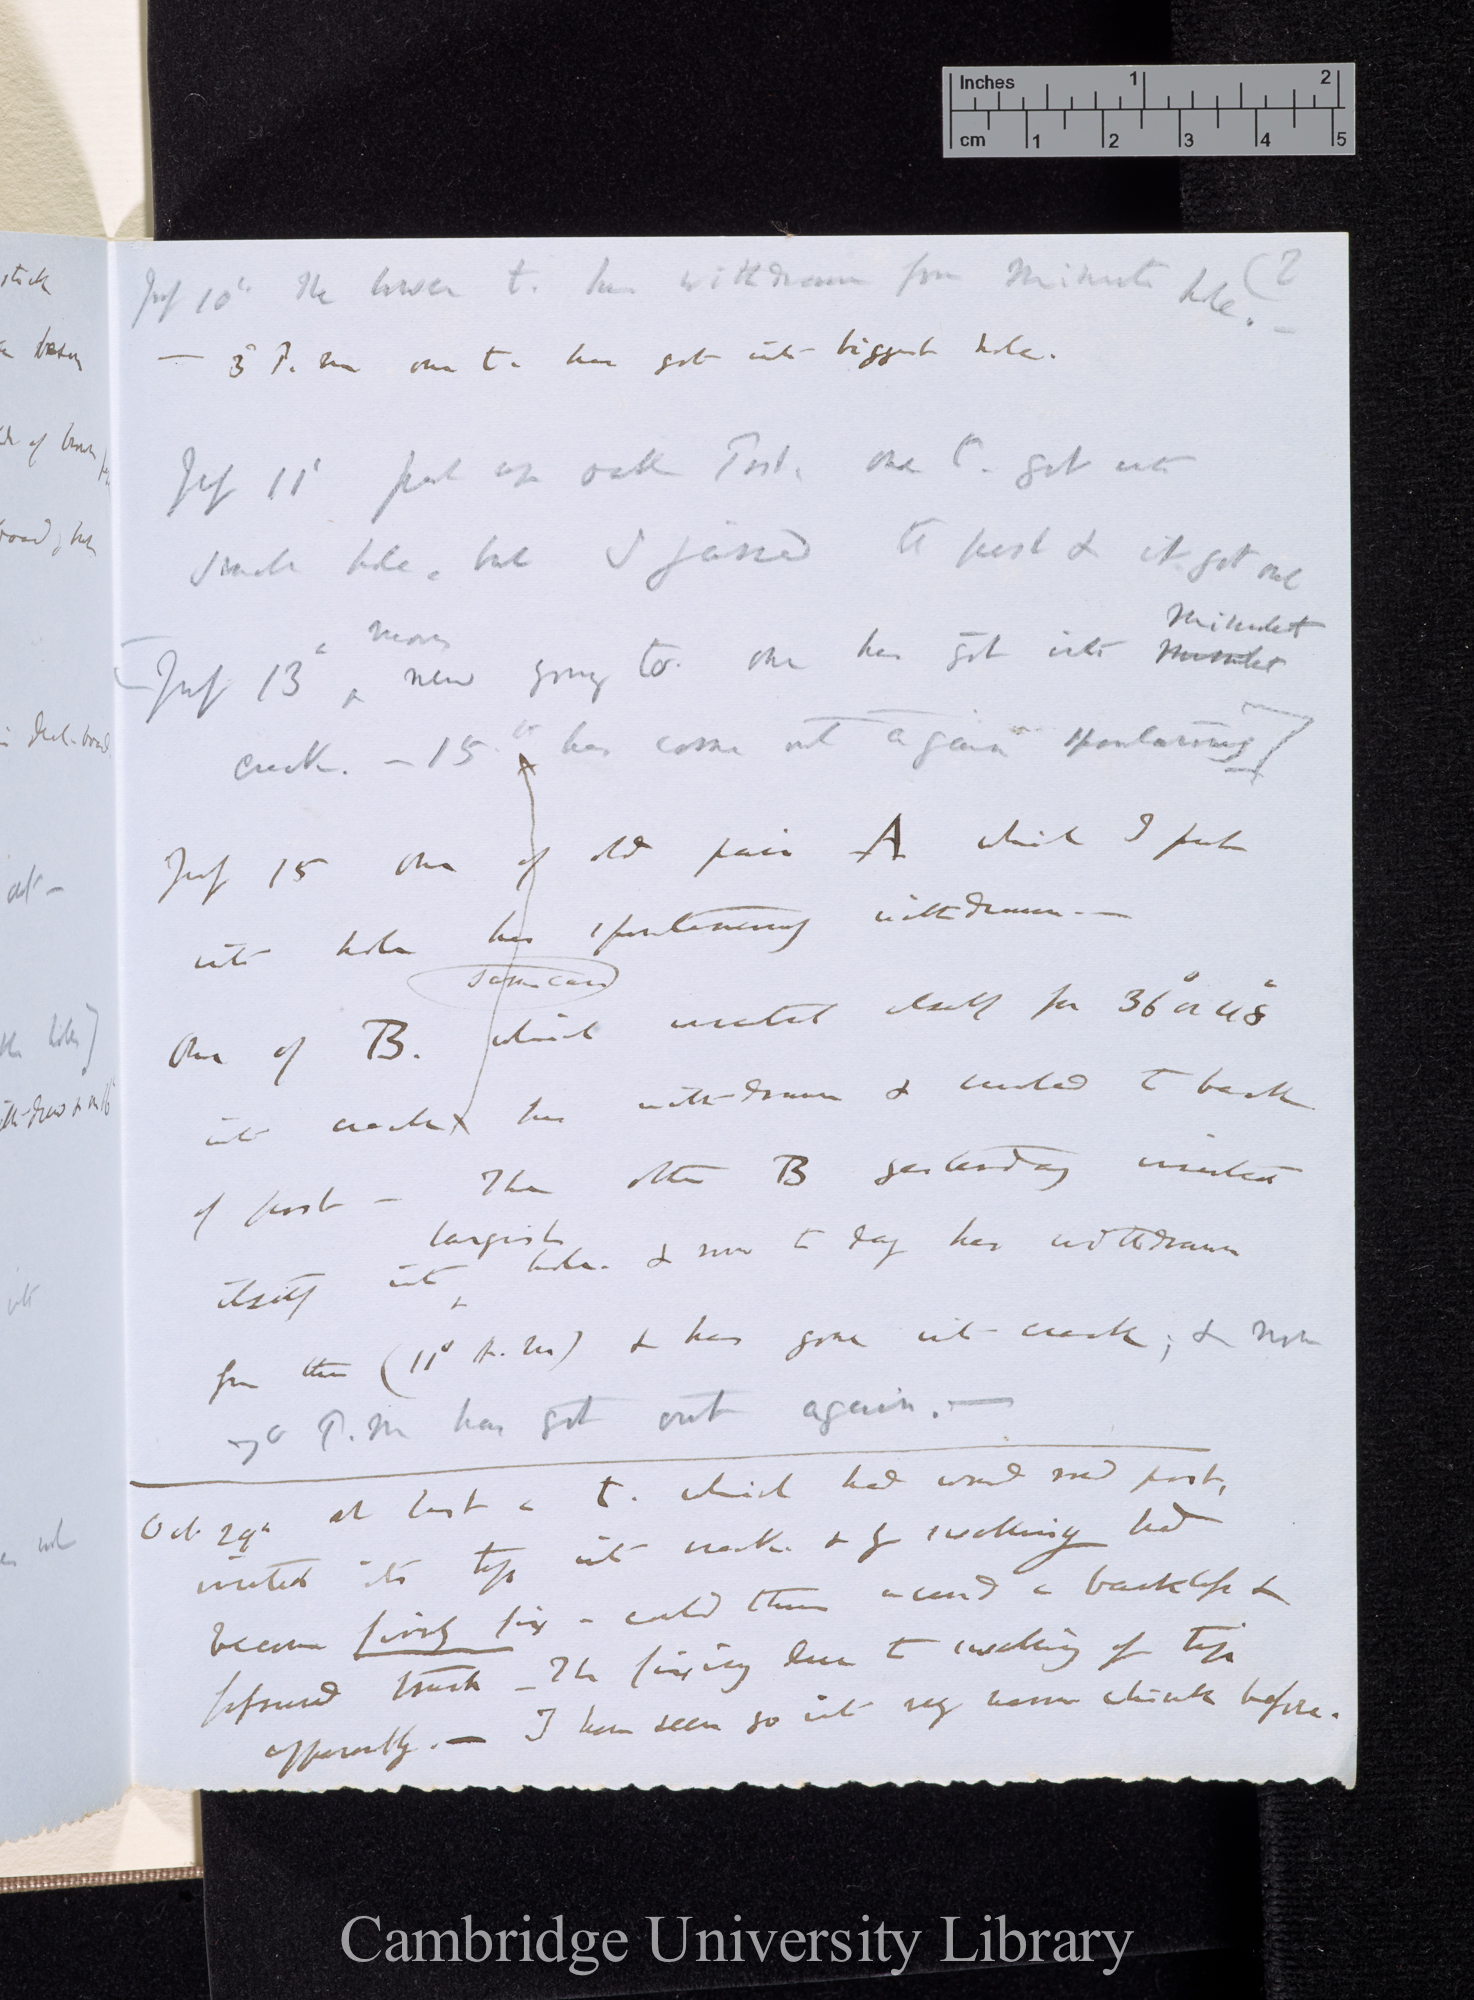 stick
Inches 1 2
cm 1 2 3 4 5
(2
July 10th The lower t. has withdrawn from minute hole. —
— 3° P.m one t. has got into biggest hole.
July 11' put up oak Post. one t. got into
small hole, but I jarred the post & it got out
[July 13th new going to. one has got into minutest
crack. — 15th has come out again spontaneously]
July 15 one of old pair A which I put
into hole has spontaneously withdrawn. —
(same case)
One of B. which inserted itself for 36° or 48°
into crack has with-drawn & curled to back
of post — The other B yesterday inserted
itself into largish hole. & now to day has withdrawn
from this (11° A.m) & has gone into crack; & now
7° P.m has got out again. —
Oct 29th at last a t. which had wound round post,
inserted its tip into crack & by swelling had
become firmly fix — could then
The fixing due to swelling of tip
apparently. — I have seen so into before.
Cambridge University Library